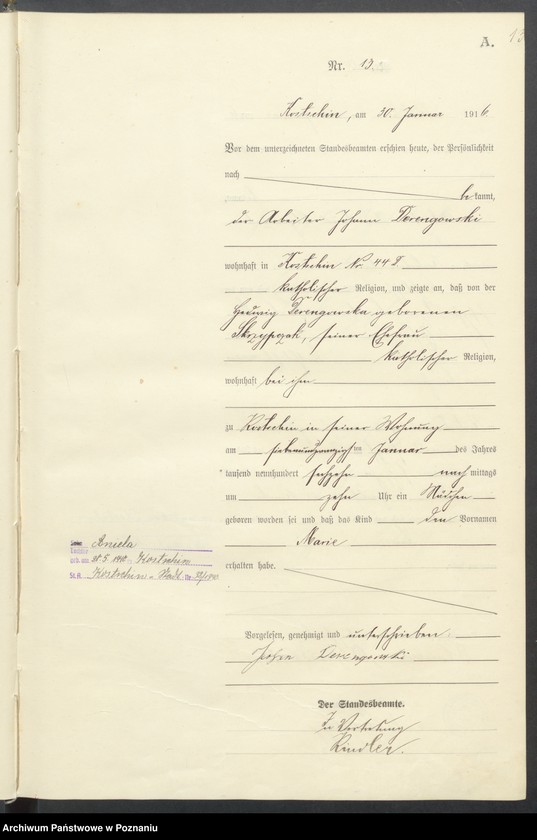 A.
13
Nr. 13.
Kostschin, am 30. Januar 1916.
Vor dem unterzeichneten Standesbeamten erschien heute, der Persönlichkeit
nach
bekannt,
der Arbeiter Johann Derengowski
wohnhaft in Kostschin Nr. 44
katholischer Religion, und zeigte an, daß von der
Hedwig Derengowska geborenen
Skrzypczak, seiner Ehefrau
katholischer Religion,
wohnhaft bei ihm
zu Kostschin in seiner Wohnung
am siebenundzwanzigsten Januar des Jahres
tausend neunhundert sechzehn nachmittags
um zehn Uhr ein Mädchen
geboren worden sei und daß das Kind den Vornamen
Marie
erhalten habe.
Aniela
geb. am 5. 1940 Kostschin
St. A. Kostschin-Stadt Nr.
Vorgelesen, genehmigt und unterschrieben.
Derengowski
Der Standesbeamte.
In Vertretung
Archiwum Państwowe w Poznaniu